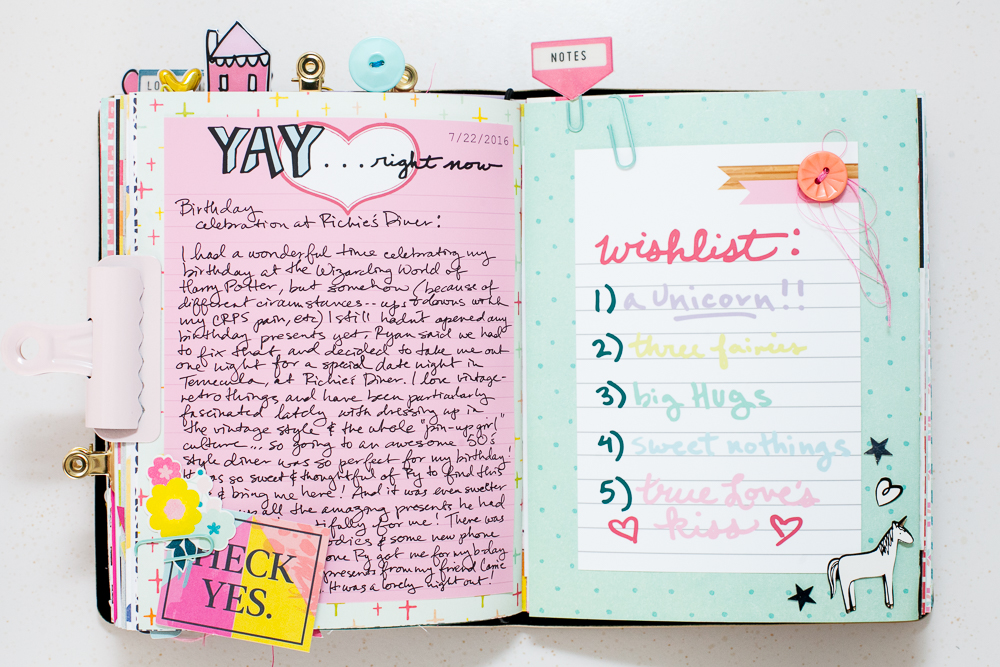 LO
NOTES
YAY
7/22/2016
...right now
Birthday
celebration at Richie's Diner:
I had a wonderful time celebrating my
birthday at the Wizarding World of
Harry Potter, but somehow (because of
different circumstances -- ups & downs with
my CRPS pain, etc) I still hadn't opened any
birthday presents yet. Ryan said we had
to fix that, and decided to take me out
one night for a special date night in
Temecula, at Richie's Diner. I love vintage-
retro things and have been particularly
fascinated lately with dressing up in
the vintage style & the whole "pin-up girl"
culture... so going to an awesome 50's
style diner was so perfect for my birthday!
It was so sweet & thoughtful of Ry to find this
& bring me here! And it was even sweeter
all the amazing presents he had
for me! There was
& some new phone
one Ry got me for my bday
presents from my friend Came
It was a lovely night out!
HECK
YES.
wishlist:
1) a Unicorn!!
2) three fairies
3) big Hugs
4) sweet nothings
5) true Love's
kiss